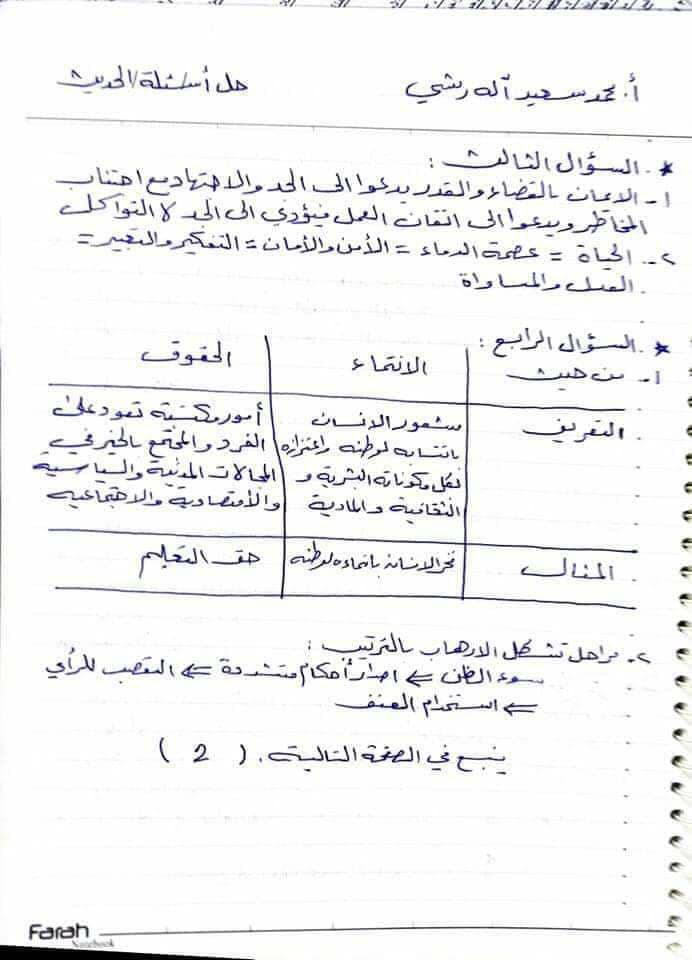 أ. محمد سعيد آل رشي حل أسئلة الحديث
* السؤال الثالث :
١- الايمان بالقضاء والقدر يدعوا الى الجد والاجتهاد مع اجتناب
المخاطر ويدعوا الى اتقان العمل فيؤدي الى الجد لا التواكل
٢- الحياة = عصمة الدماء = الأمن والأمان = التفكير والتعبير =
العدل والمساواة
* السؤال الرابع :
١- من حيث الانتماء الحقوق
التعريف
شعور الانسان
بانتسابه لوطنه واعتزازه
لكل مكوناته البشرية و
الثقافية والمادية
أمور مكتسبة تعود على
الفرد والمجتمع بالخير في
المجالات المدنية والسياسية
والأقتصادية والاجتماعيه
المثال فخر الانسان بانتماءه لوطنه حق التعليم
٢- مراحل تشكل الارهاب بالترتيب :
سوء الظن ⇐ اصدار أحكام متشددة ⇐ التعصب للرأي
⇐ استخدام العنف
يتبع في الصفحة التالية . ( 2 )
Farah
Notebook